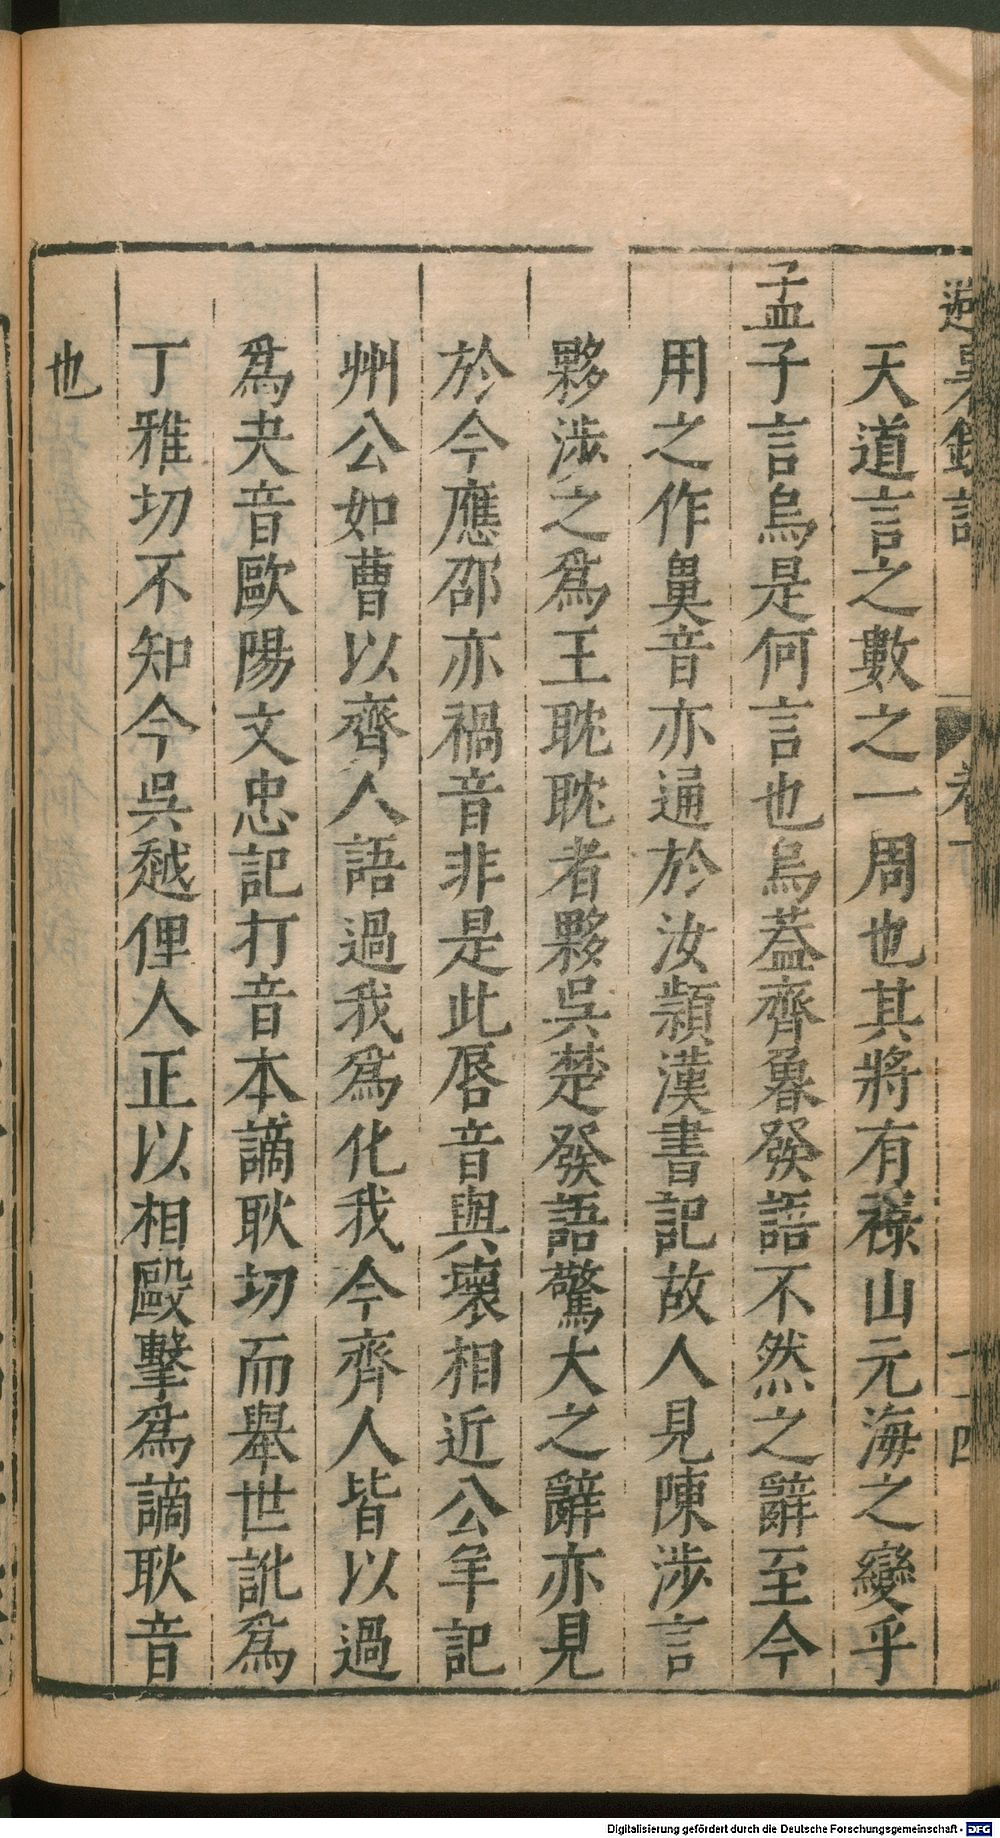 避暑錄話 卷下
天道言之數之一周也其將有祿山元海之變乎
孟子言烏是何言也烏蓋齊魯發語不然之辭至今
用之作鼻音亦通於汝潁漢書記故人見陳涉言
夥涉之爲王耽耽者夥吳楚發語驚大之辭亦見
於今應邵亦禍音非是此唇音與壞相近公羊記
州公如曹以齊人語過我爲化我今齊人皆以過
爲夬音歐陽文忠記打音本謫耿切而舉世訛爲
丁雅切不知今吳越俚人正以相毆擊爲謫耿音
也
Digitalisierung gefördert durch die Deutsche Forschungsgemeinschaft - DFG